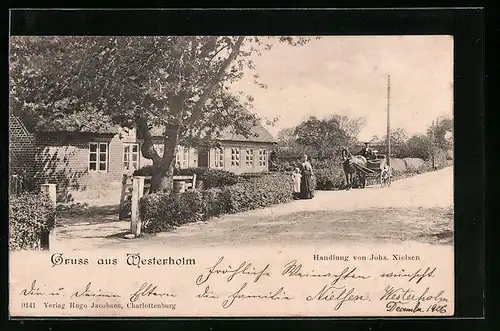 Gruss aus Westerholm
Handlung von Johs. Nielsen
Fröhliche Weinnachten wünscht
Dir u. Deinen Eltern die Familie Nielsen Westerholm
December 1906
9141 Verlag Hugo Jacobsen, Charlottenburg